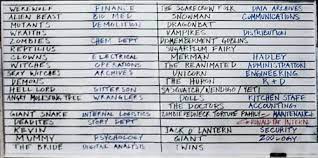 WEREWOLF FINANCE THE SCARECROW FOLK DATA ARCHIVES
ALIEN BEAST BIO MED SNOWMAN COMMUNICATIONS
MUTANTS DEMOLITION DRAGONBAT
WRAITHS VAMPIRES DISTRIBUTION
ZOMBIES CHEM DEPT DISMEMBERMENT GOBLINS
REPTILIUS SUGARPLUM FAIRY
CLOWNS ELECTRICAL MERMAN HADLEY
WITCHES OPERATIONS THE REANIMATED ADMINISTRATION
SEXY WITCHES ARCHIVES UNICORN ENGINEERING
DEMONS THE HURON R+D
HELL LORD SITTERSON SASQUATCH/WENDIGO/YETI
ANGRY MOLESTING TREE WRANGLERS DOLLS KITCHEN STAFF
THE DOCTORS ACCOUNTING
GIANT SNAKE INTERNAL LOGISTICS ZOMBIE REDNECK TORTURE FAMILY MAINTENANCE
DEADITES STORY DEPT RONALD THE INTERN
KEVIN JACK O LANTERN SECURITY
MUMMY PSYCHOLOGY GIANT ZOOLOGY
THE BRIDE DIGITAL ANALYSIS TWINS